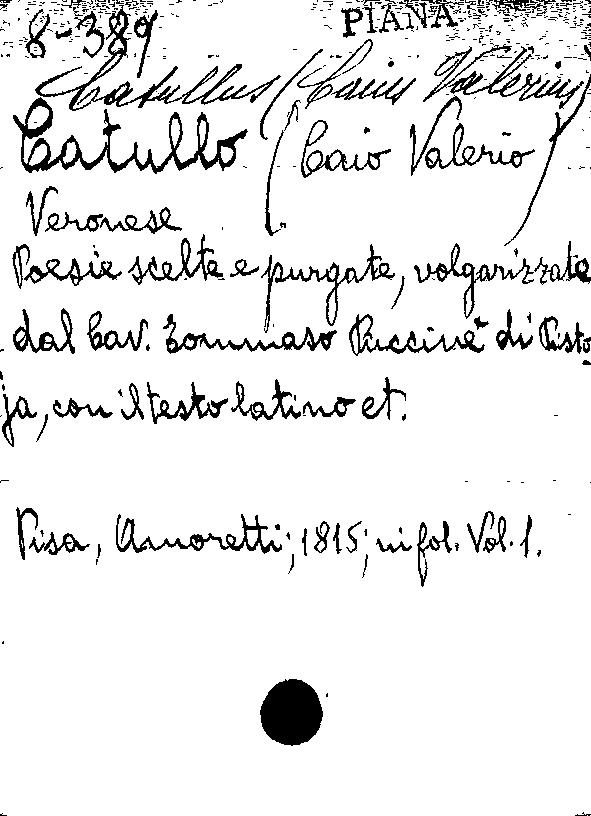 8-389
PIANA
Catullus (Caius Valerius)
Catullo (Caio Valerio)
Veronese
Poesie scelte e purgate, volgarizzate
dal Cav. Tommaso Puccini di Pisto
ja, con il testo latino et.
Pisa, Amoretti; 1815; in fol. Vol. 1.